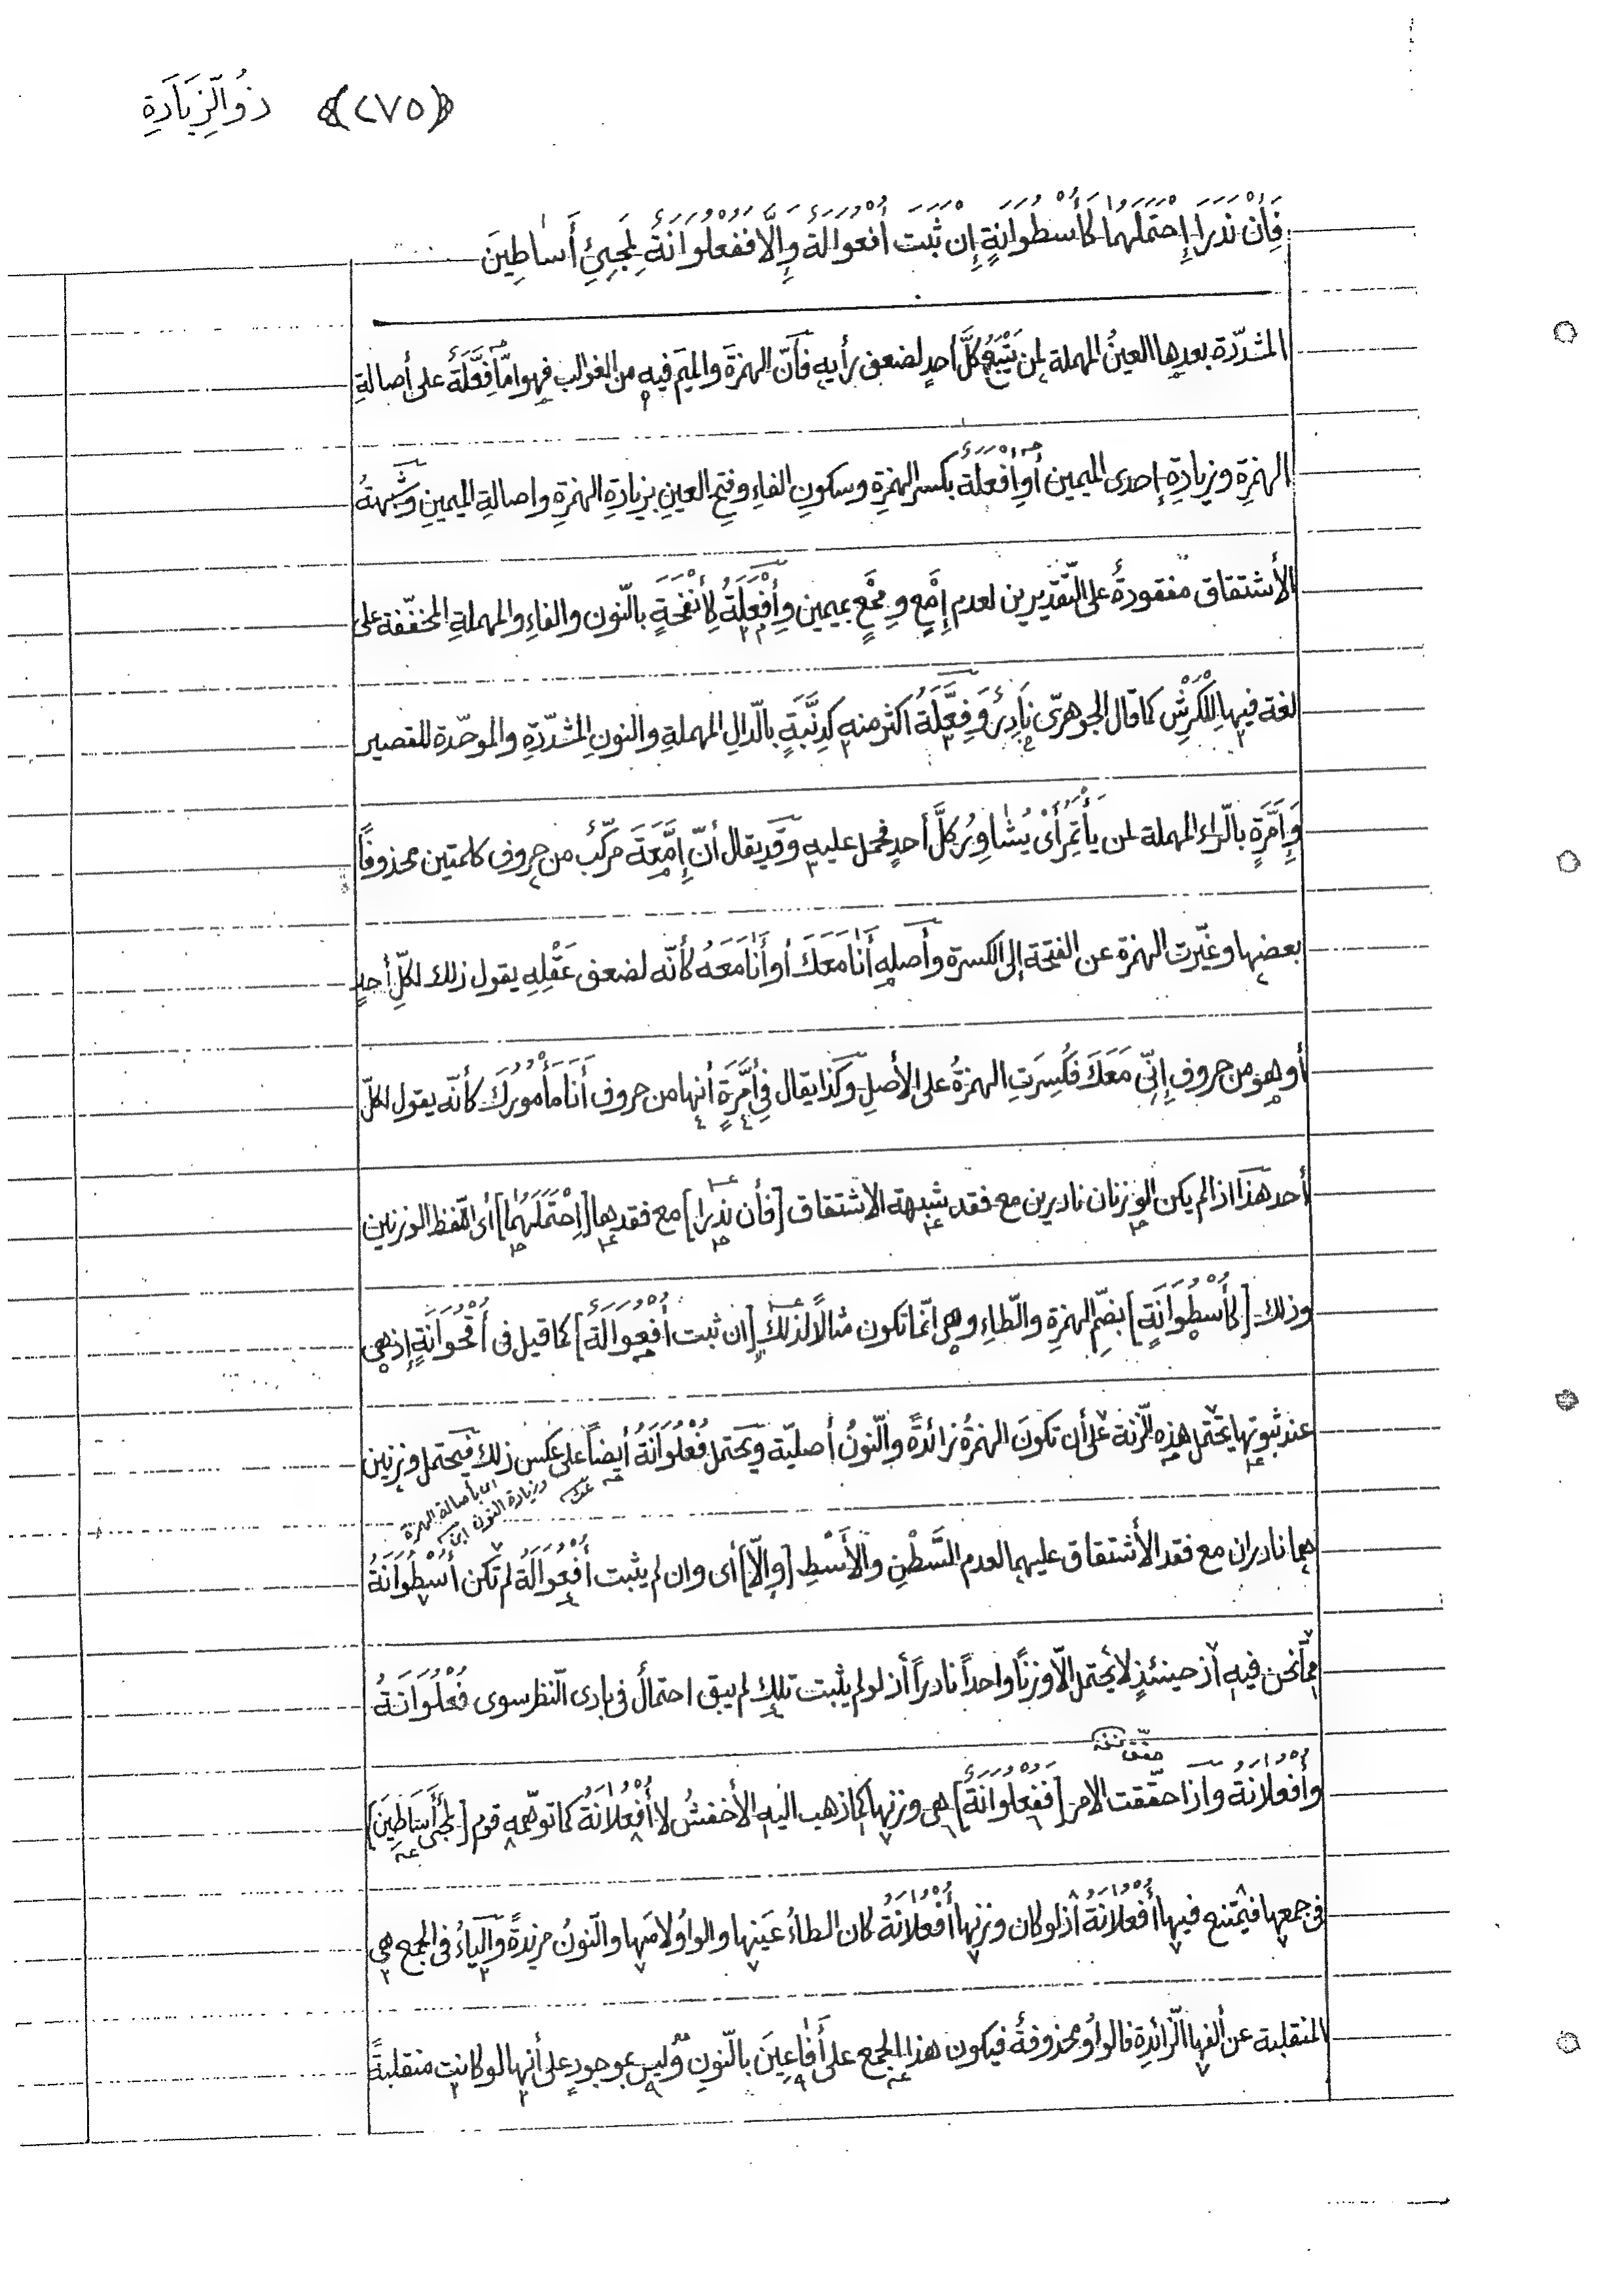 ذُوالزِّيَادَةِ ﴿٢٧٥﴾
فَإِنْ نَدَرَا إِحْتَمَلَهُمَا كَأُسْطُوَانَةٍ إِنْ ثَبَتَ أُفْعُوَالَةٌ وَإِلَّا فَفُعْلُوَانَةٌ لِمَجِيْئِ أَسَاطِينَ
المشدّدة بعدها العينُ المهملة لمن يَتْبَعُ كلَّ أحدٍ لضعف رأيه فأنّ الهمزةَ والميَم فيه من الغوالب فهو امّا فِعَّلَةٌ على أصالةِ
الهمزةِ وزيادةِ إحدى الميمين أو إِفْعَلَة بكسر الهمزةِ وسكونِ الفاءِ وفتح العينِ بزيادةِ الهمزةِ واصالةِ الميمينِ وشبهةُ
الأشتقاق مفقودةٌ على التّقديرين لعدم إمْعٍ ومَمْعٍ بميمين وإِفْعَلَةٌ كِأنْفَحَةٍ بالنّون والفاءِ والمهملةِ المخفّفة على
لغة فيها لِلْكَرْشِ كما قال الجوهرىّ نَادِرٌ وَفِعَّلَةٌ اكثر منه كدِنَّبَةٍ بالّدالِ المهملةِ والنونِ المشدّدةِ والموحّدة للقصير
وَإِمَّرَةٍ بالّراء المهملة لمن يَأْتَمِرُ أىْ يُشَاوِرُ كلَّ أحدٍ فحمل عليه وَقد يقال أنّ إِمَّعَةَ مركّبٌ من حروف كلمتين محذوفاً
بعضها وغيّرت الهمزة عن الفتحة إلى الكسرة وأصله أَنَا مَعَكَ أو أَنَا مَعَهُ كأنّه لضعف عَقْلِهِ يقول ذلك لكلِّ أحدٍ
أو هو من حروفِ إنّى مَعَكَ فَكُسِرَتِ الهمزةُ على الأصلِ وكذا يقال فى أمَّرَةٍ أنها من حروف أَنَا مَأْمُورُكَ كأنّه يقول لكلّ
أحد هذا اذا لم يكن الوزنان نادرين مع فقد شبهة الاشتقاق [فأن نَدَرا] مع فقدها [اِحْتَمَلَهُمَا] أى اللّفظ الوزنين
وذلك [كأُسْطُوَانَةٍ] بضّم الهمزةِ والّطاءِ وهى انّما تكون مثالاً لذلك [ان ثبت أُفْعُوالَةٌ] كما قيل فى أُقْحُوَانَةٍ إذ هى
عند ثبوتها يحتمل هذه الّزنة على أن تكونَ الهمزةُ زائدةً والّنونُ أصليّة ويحتمل فُعْلُوَانَةٌ أيضاً على عكس ذلك فيحتمل وزنين
اى بأصالة الهمزة
وزيادة النون
هما نادران مع فقد الأشتقاق عليهما لعدم السَّطْنِ والأَسْطِ [وإلّا] أى وان لم يثبت أُفْعُوَالَةٌ لم تكن أُسْطُوَانَةٌ
ممّا نحن فيه أذ حينئذٍ لا يحتمل الّا وزناً واحداً نادراً أذ لو لم يثبت تلك لم يبق احتمالٌ فى بادى الّنظر سوى فُعْلُوَانَةٌ
حقّق نسخه
وأُفْعُلانَةٌ واذا حقّقت الامر [فَفُعْلُوَانَةٌ] هى وزنها كما ذهب اليه الأخفشُ لا أُفْعُلانَةٌ كما توهّمه قوم [لمجئ أَسَاطِينَ]
فى جمعها فيمتنع فيها أُفْعُلانَةٌ أذ لو كان وزنها أُفْعُلانَةٌ كان الطاءُ عَينها والواوُ لامَها والّنونُ مزيدةً وَالّياءُ فى الجمع هى
المنقلبة عن ألفها الّزائدةِ فالواوُ محذوفةٌ فيكون هذا الجمع على أَفَاعِينَ بالّنونِ ولَيس بموجودٍ على أنها لو كانت منقلبةً